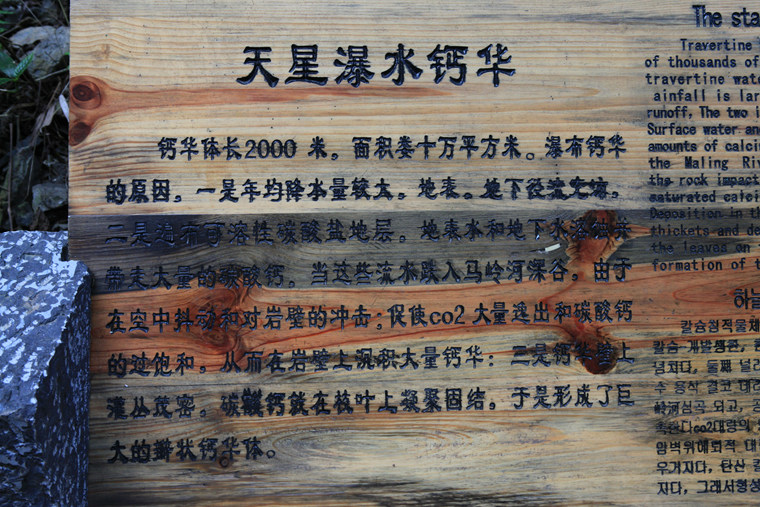 天星瀑水钙华
钙华体长2000 米。面积娄十万平方米。瀑布钙华
的原因，一是年均降水量较大。地表。地下径流充沛。
二是边布可溶性碳酸盐地层。地表水和地下水溶蚀并
带走大量的碳酸钙。当这些流水跌入马岭河深谷。由于
在空中抖动和对岩壁的冲击；促使co2大量逸出和碳酸钙
的过饱和。从而在岩壁上沉积大量钙华；三是钙华壁上
灌丛茂密。碳酸钙能在枝叶上凝聚固结。于是形成了巨
大的瓣状钙华体。
The sta
Travertine
of thousands of
travertine wate
ainfall is lar
runoff, The two i
Surface water and
amounts of calci
the Maling Riv
the rock impact
saturated calci
Deposition in th
thickets and de
the leaves on
formation of t
하늘
칼슘성적물체
칼슘 개발생튼,
녕코다, 둘째 널리
수 용삭 결코 대
학하심곡 되고, 공
촉한다co2대령의
암벽위해퇴적 대
우거지다, 탄산 칼
자다, 그래서형성